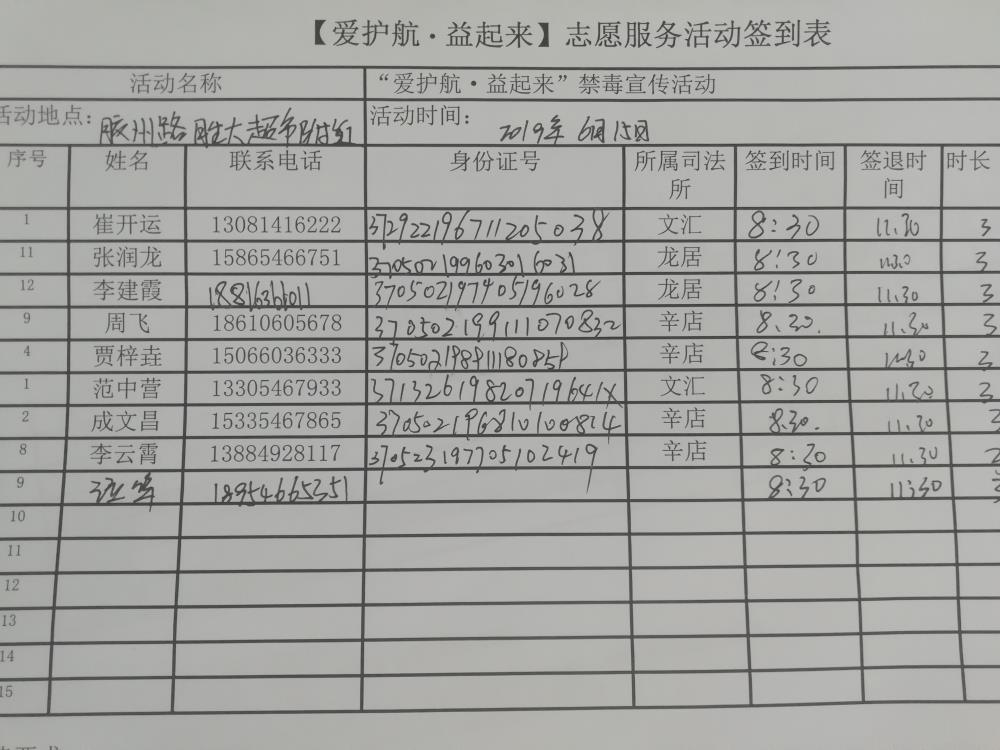 【爱护航·益起来】志愿服务活动签到表
活动名称 “爱护航·益起来”禁毒宣传活动
活动地点： 胶州路胜大超市附近 活动时间： 2019年6月15日
序号 姓名 联系电话 身份证号 所属司法所 签到时间 签退时间 时长
1 崔开运 13081416222 372922196711205038 文汇 8:30 11.30 3
11 张润龙 15865466751 370502199603016031 龙居 8:30 11.30 3
12 李建霞 18816366011 370502197405196028 龙居 8:30 11.30 3
9 周飞 18610605678 370502199111070832 辛店 8.30. 11.30 3
4 贾梓垚 15066036333 辛店 8:30 11.30 3
1 范中营 13305467933 37132619820719641X 文汇 8:30 11.30 3
2 成文昌 15335467865 370502196810100814 辛店 8.30. 11.30
8 李云霄 13884928117 370523197705102419 辛店 8:30 11.30
9 18954665351 8:30 11:30
10
11
12
13
14
15